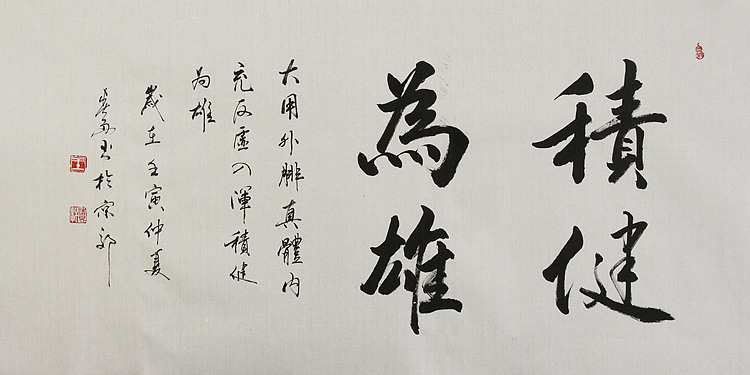 積健
為雄
大用外腓真體內
充反虛入渾積健
為雄
歲在壬寅仲夏
書於京郊